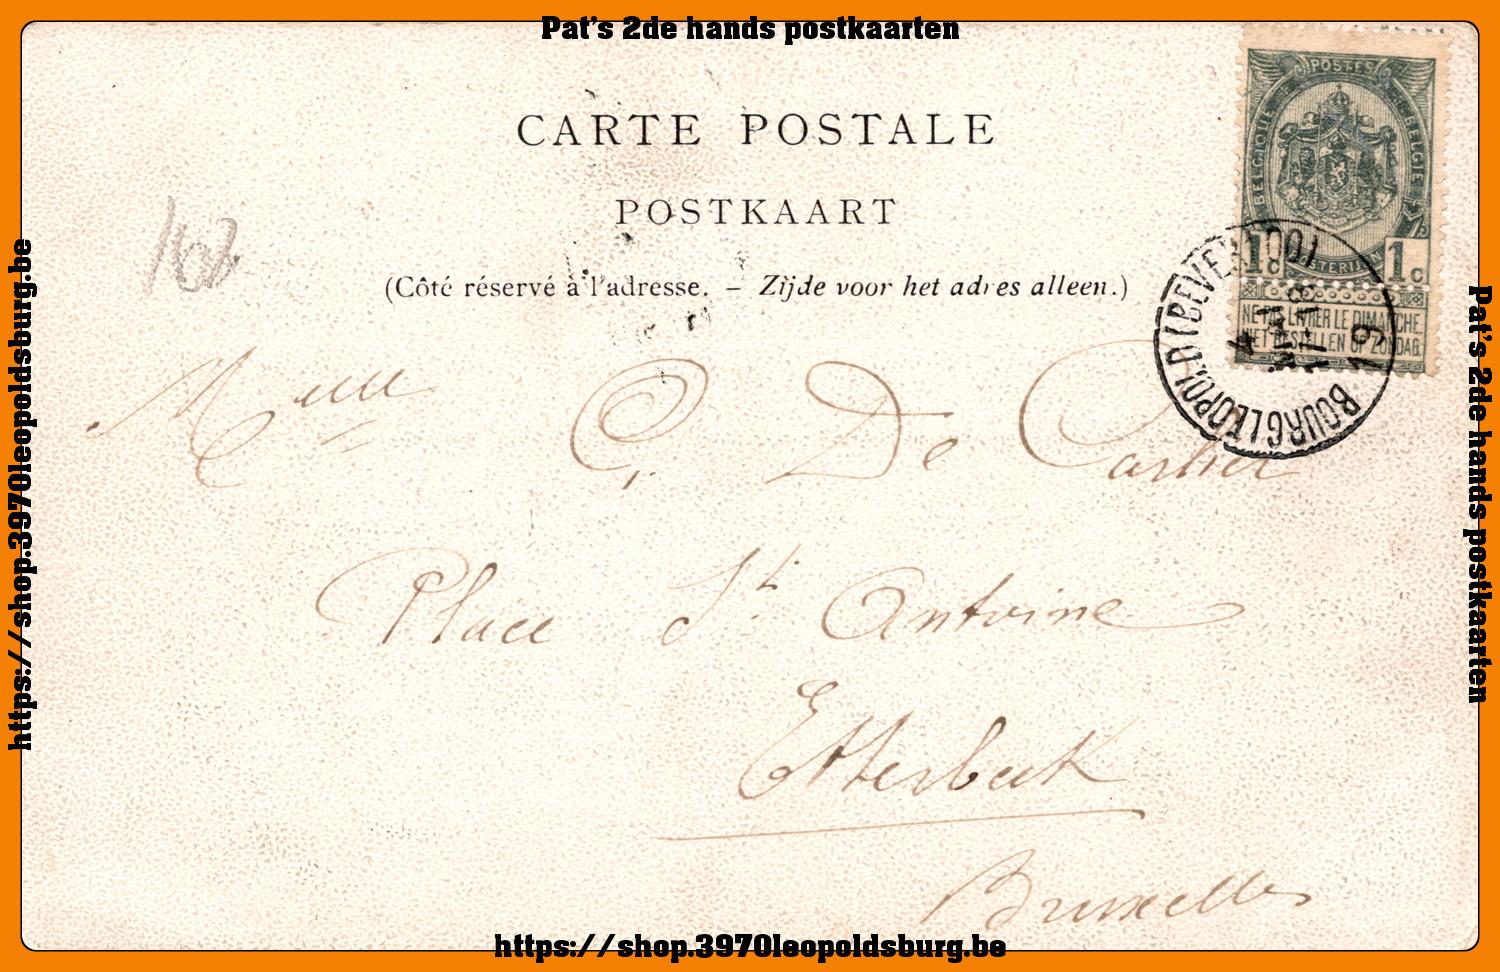 Pat's 2de hands postkaarten
CARTE POSTALE
POSTKAART
(Côté réservé à l'adresse. – Zijde voor het adres alleen.)
POSTES
BELGIQUE BELGIE
1c 1c
NE PAS LIVRER LE DIMANCHE.
NIET BESTELLEN OP ZONDAG.
BOURG LEOPOLD (BEVERLOO)
Melle G. De Cartier
Place St Antoine
Etterbeek
Bruxelles
https://shop.3970leopoldsburg.be
https://shop.3970leopoldsburg.be
Pat's 2de hands postkaarten